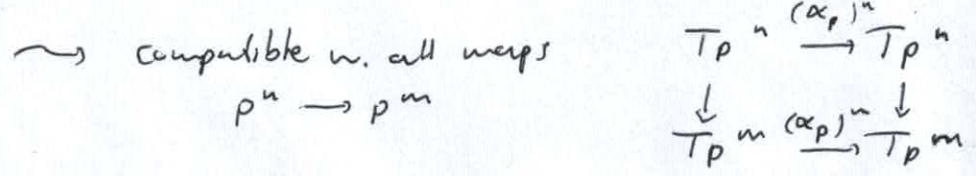 ⇝ compatible w. all maps
pⁿ → pᵐ
Tpⁿ (αₚ)ⁿ → Tpⁿ
↓ ↓
Tpᵐ (αₚ)ⁿ → Tpᵐ